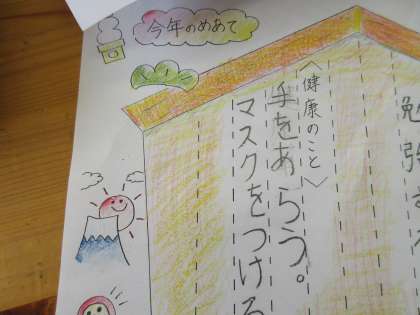 今年のめあて
勉強
〈健康のこと〉
手をあらう。
マスクをつける